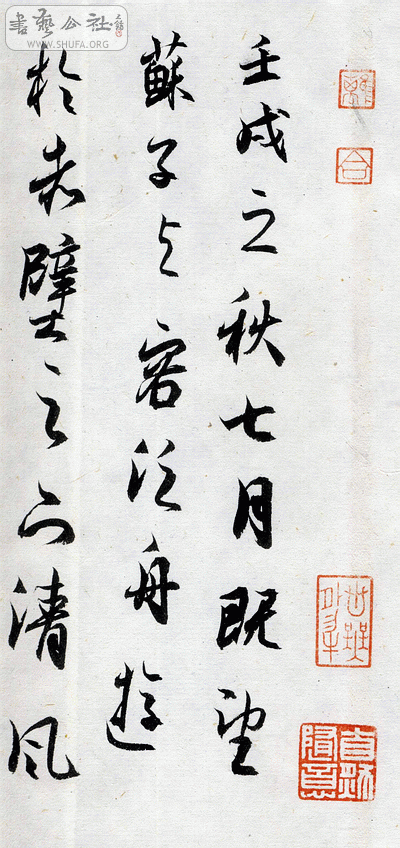 壬戌之秋七月既望
蘇子与客泛舟遊
於赤壁之下清風
書藝公社
WWW.SHUFA.ORG